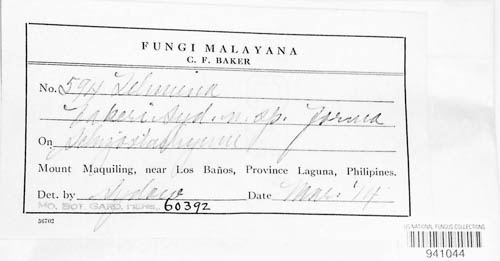 FUNGI MALAYANA
C. F. BAKER
No. 594
Bakeri Syd. n. sp. forma
On Schizostachyum
Mount Maquiling, near Los Baños, Province Laguna, Philipines.
Det. by Sydow Date Mar. '14
MO. BOT. GARD. HERB. 60392
36702
US NATIONAL FUNGUS COLLECTIONS
941044